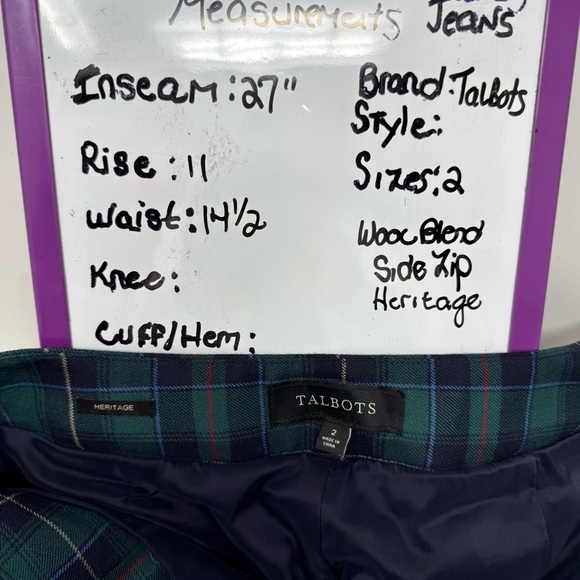 Measurements
Jeans
Inseam: 27"
Rise: 11
Waist: 14 1/2
Knee:
Cuff/Hem:
Brand: Talbots
Style:
Sizes: 2
Wool Blend
Side Zip
Heritage
HERITAGE
TALBOTS
2
MADE IN
CHINA